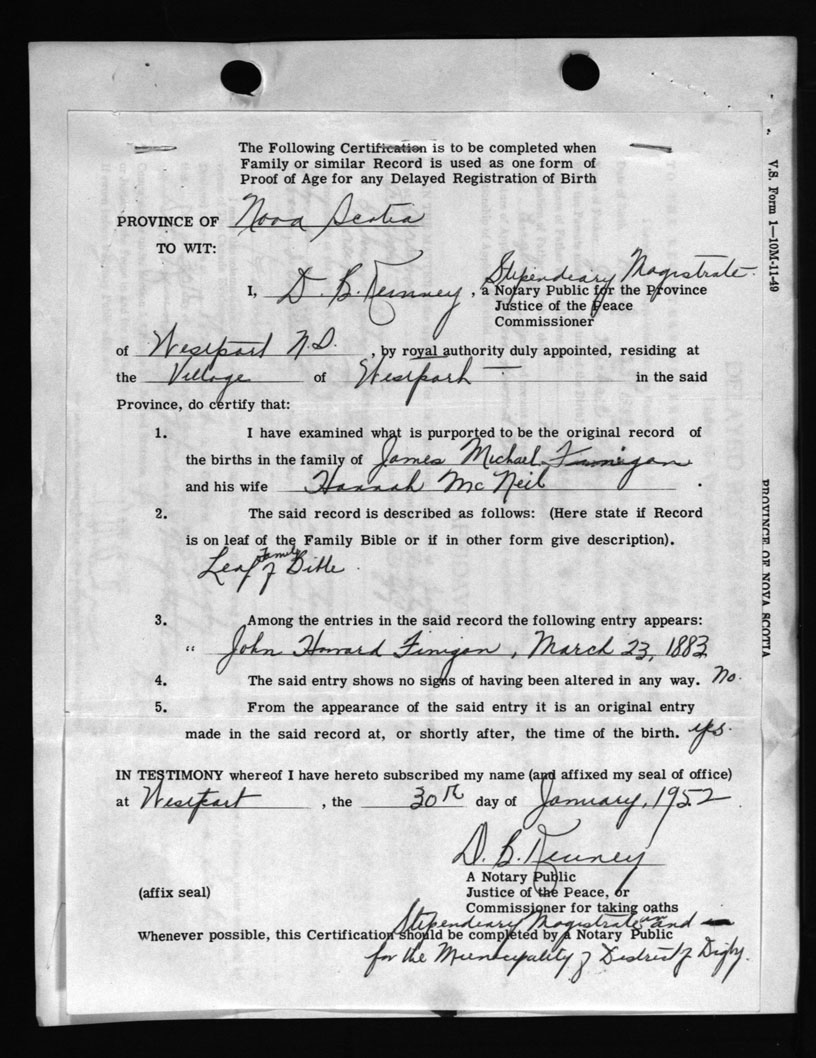 The Following Certification is to be completed when
Family or similar Record is used as one form of
Proof of Age for any Delayed Registration of Birth
PROVINCE OF Nova Scotia
TO WIT:
Stipendeary Magistrate.
I, D. B. Kenney, a Notary Public for the Province
Justice of the Peace
Commissioner
of Westport N.S., by royal authority duly appointed, residing at
the Village of Westport in the said
Province, do certify that:
1. I have examined what is purported to be the original record of
the births in the family of James Michael Finnigan
and his wife Hannah Mc Neil.
2. The said record is described as follows: (Here state if Record
is on leaf of the Family Bible or if in other form give description).
Leaf of Family Bible.
3. Among the entries in the said record the following entry appears:
" John Howard Finigan, March 23, 1883
4. The said entry shows no signs of having been altered in any way. No.
5. From the appearance of the said entry it is an original entry
made in the said record at, or shortly after, the time of the birth. yes.
IN TESTIMONY whereof I have hereto subscribed my name (and affixed my seal of office)
at Westport, the 30th day of January, 1952
D. B. Kenney
A Notary Public
(affix seal) Justice of the Peace, or
Commissioner for taking oaths
Stipendeary Magistrate in and
Whenever possible, this Certification should be completed by a Notary Public
for the Municipality of District of Digby.
V.S. Form 1—10M-11-49
PROVINCE OF NOVA SCOTIA